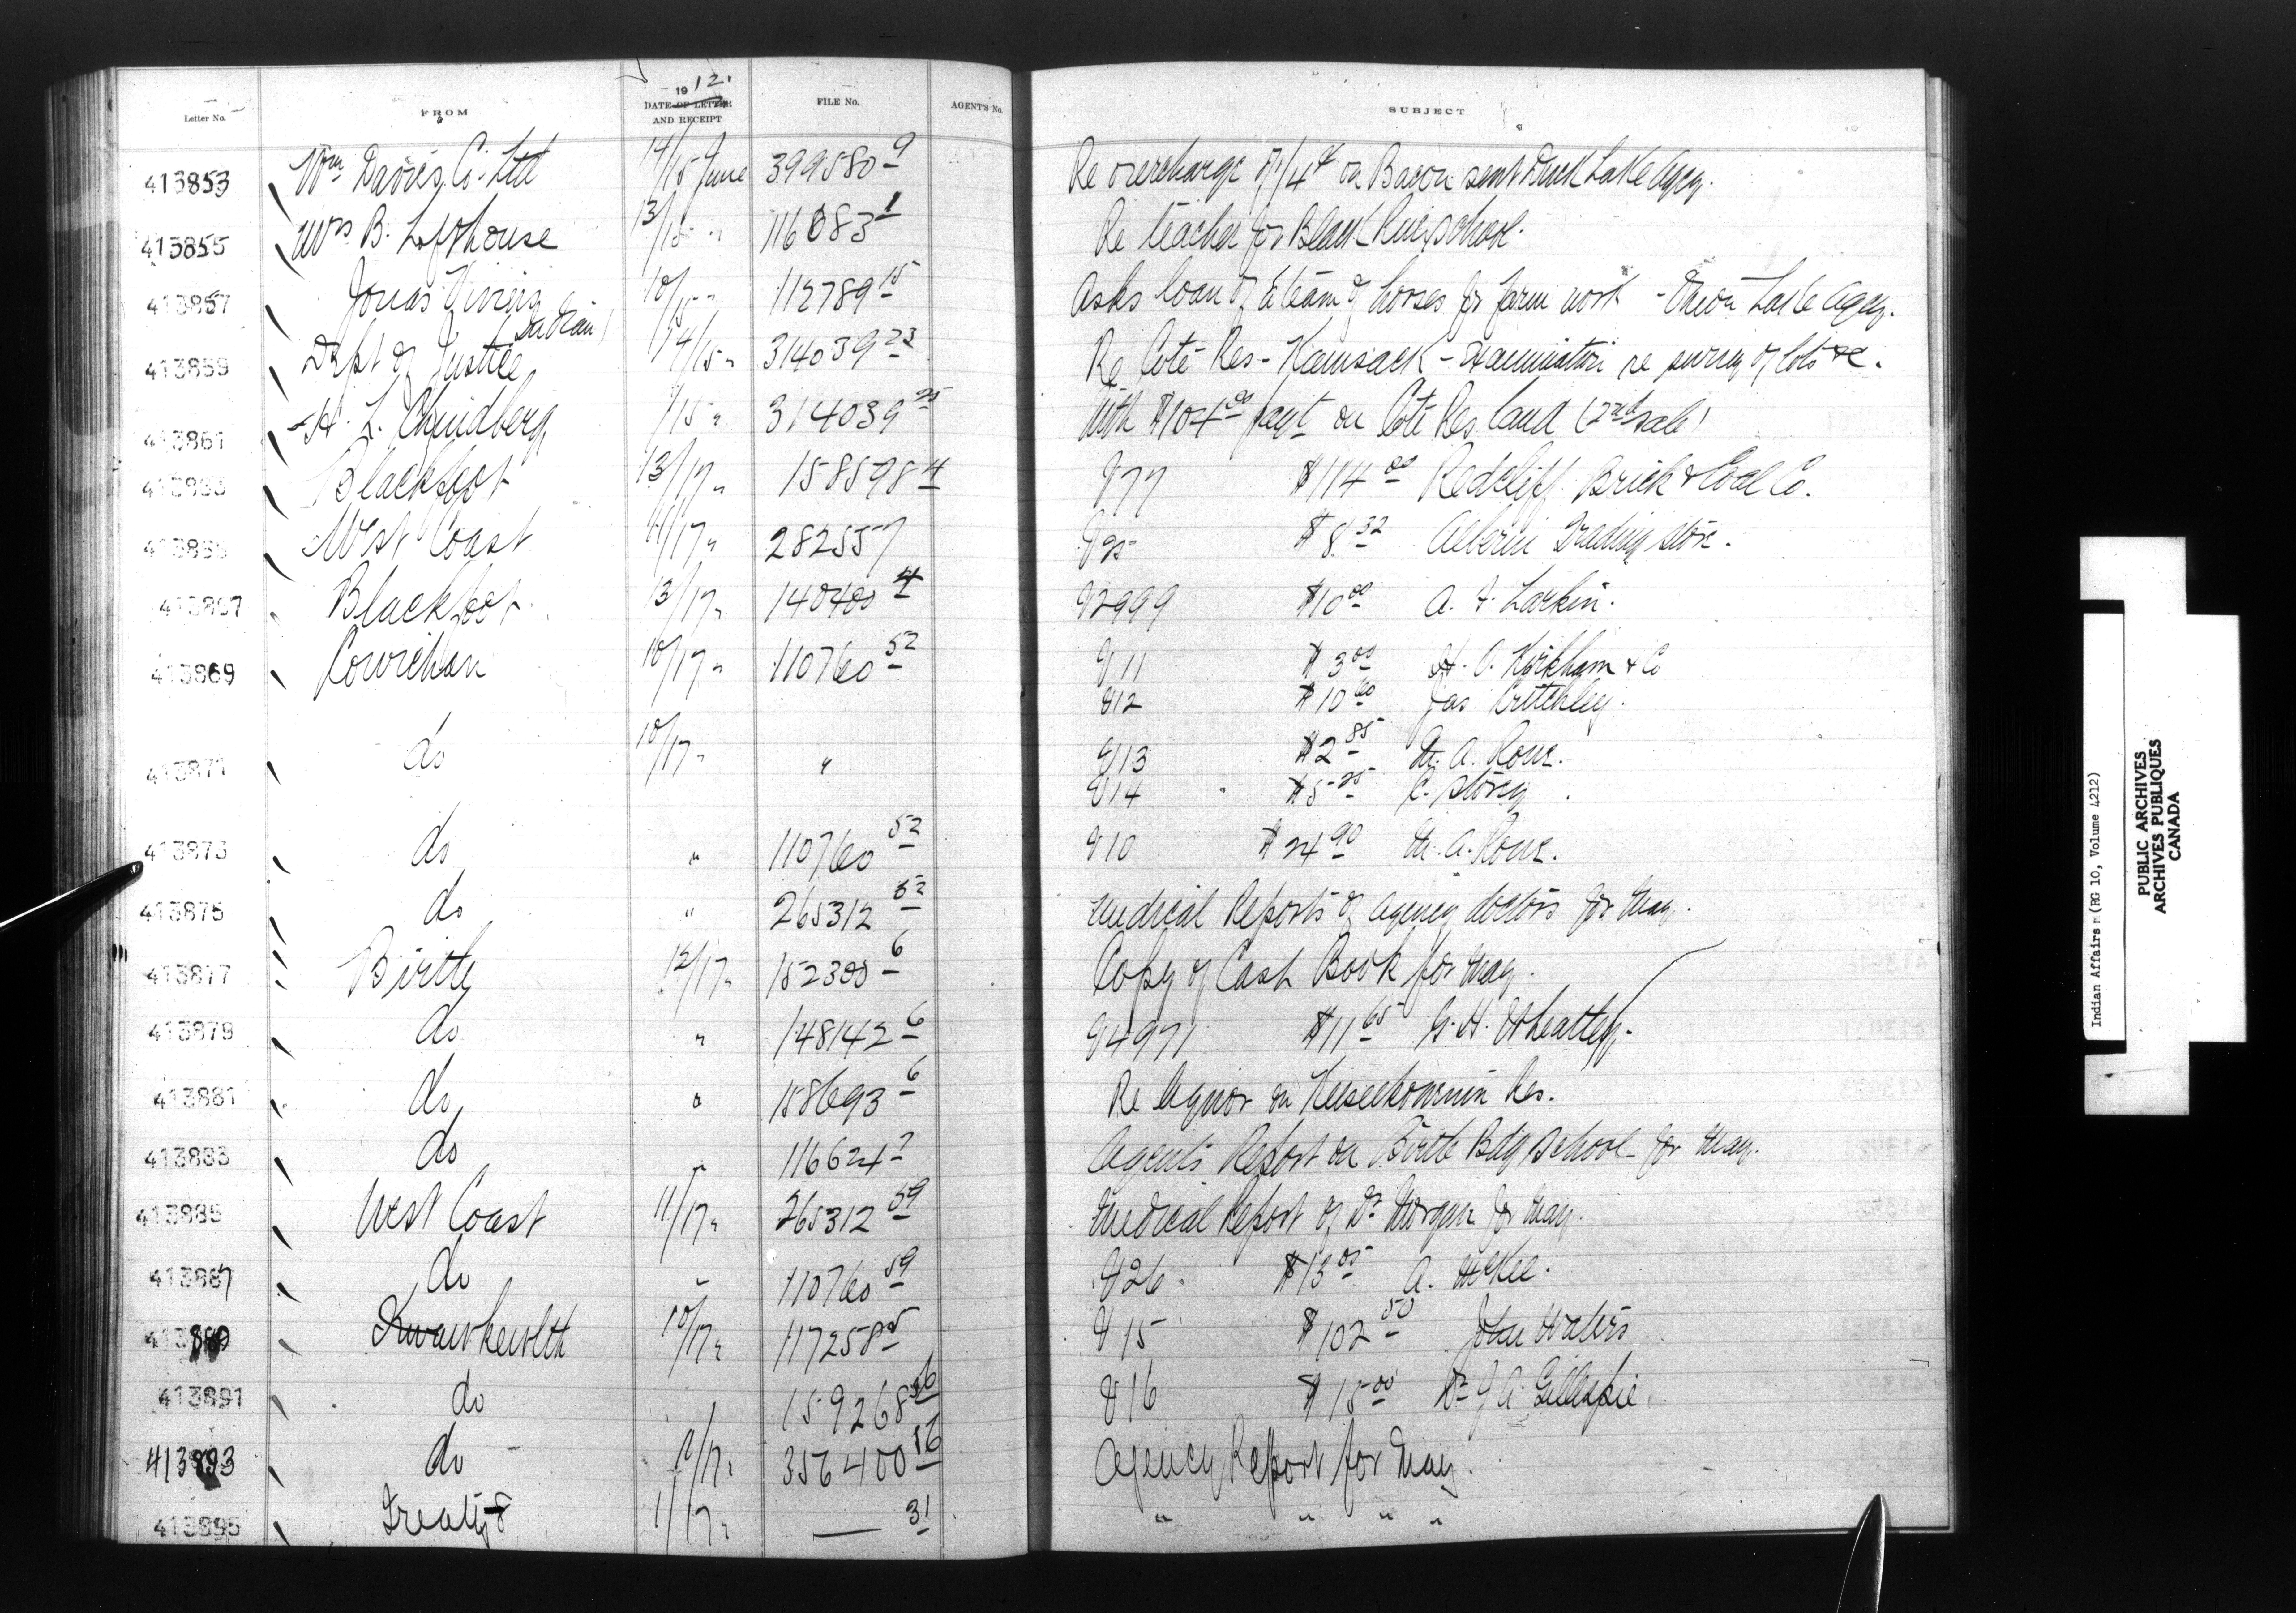 Letter No. FROM 1912. DATE OF LETTER AND RECEIPT FILE No. AGENT'S No. SUBJECT
413853 Wm Davies Co. Ltd 14/15 June 399580-9 Re overcharge of 1/4¢ on Bacon sent Duck Lake Agcy.
413855 B. Lofthouse 13/15 " 116083-1 Re teacher for Black River school.
413857 Jonas (Indian) 10/15 " 112789-15 Asks loan of team of horses for farm work - Onion Lake Agcy.
413859 Dept of Justice 14/15 " 314039-23 Re Coté Res - Kamsack - re survey of lots &c.
413861 A. L. 15 " 314039-25 With $104.00 payt on Coté Res land (2nd sale)
Blackfoot 13/17 " 158598-4 V77 $114.00 Redcliff Brick & Coal Co.
West Coast 11/17 " 282557 V25 $8.32 Alberni Trading Store.
413867 Blackfoot 13/17 " 140400-4 V2999 $10.00 A. F. Larkin.
413869 Cowichan 10/17 " 110760-52 V11 $3.00 H. O. Kirkham & Co
V12 $10.60 Jas Critchley.
413871 do 10/17 " " V13 $2.85 A. Rowe.
V14 $5.25 C. Storey.
413873 do " 110760-52 V10 $24.90 A. Rowe.
413875 do " 265312-52 Medical Reports of Agency doctors for May.
413877 Birtle 12/17 " 152300-6 Copy of Cash Book for May.
413879 do " 148142-6 V4971 $11.65 G. H. Wheatley.
413881 do " 158693-6 Re liquor on Keeseekoowenin Res.
413883 do " 116624-2 Agent's Report on Birtle Bdg School for May.
413885 West Coast 11/17 " 265312-59 Medical Report of Dr Morgan for May.
413887 do " 110760-59 V26 $13.05 A. McKee.
413889 Kwawkewlth 10/17 " 117258-25 V15 $102.50 John Waters
413891 do 159268-56 V16 $15.00 Dr J A. Gillespie.
413893 do 12/17 " 356400-56 Agency Report for May.
413895 Treaty 8 11/17 " — 31 " " " "
Indian Affairs (RG 10, Volume 4212)
PUBLIC ARCHIVES
ARCHIVES PUBLIQUES
CANADA